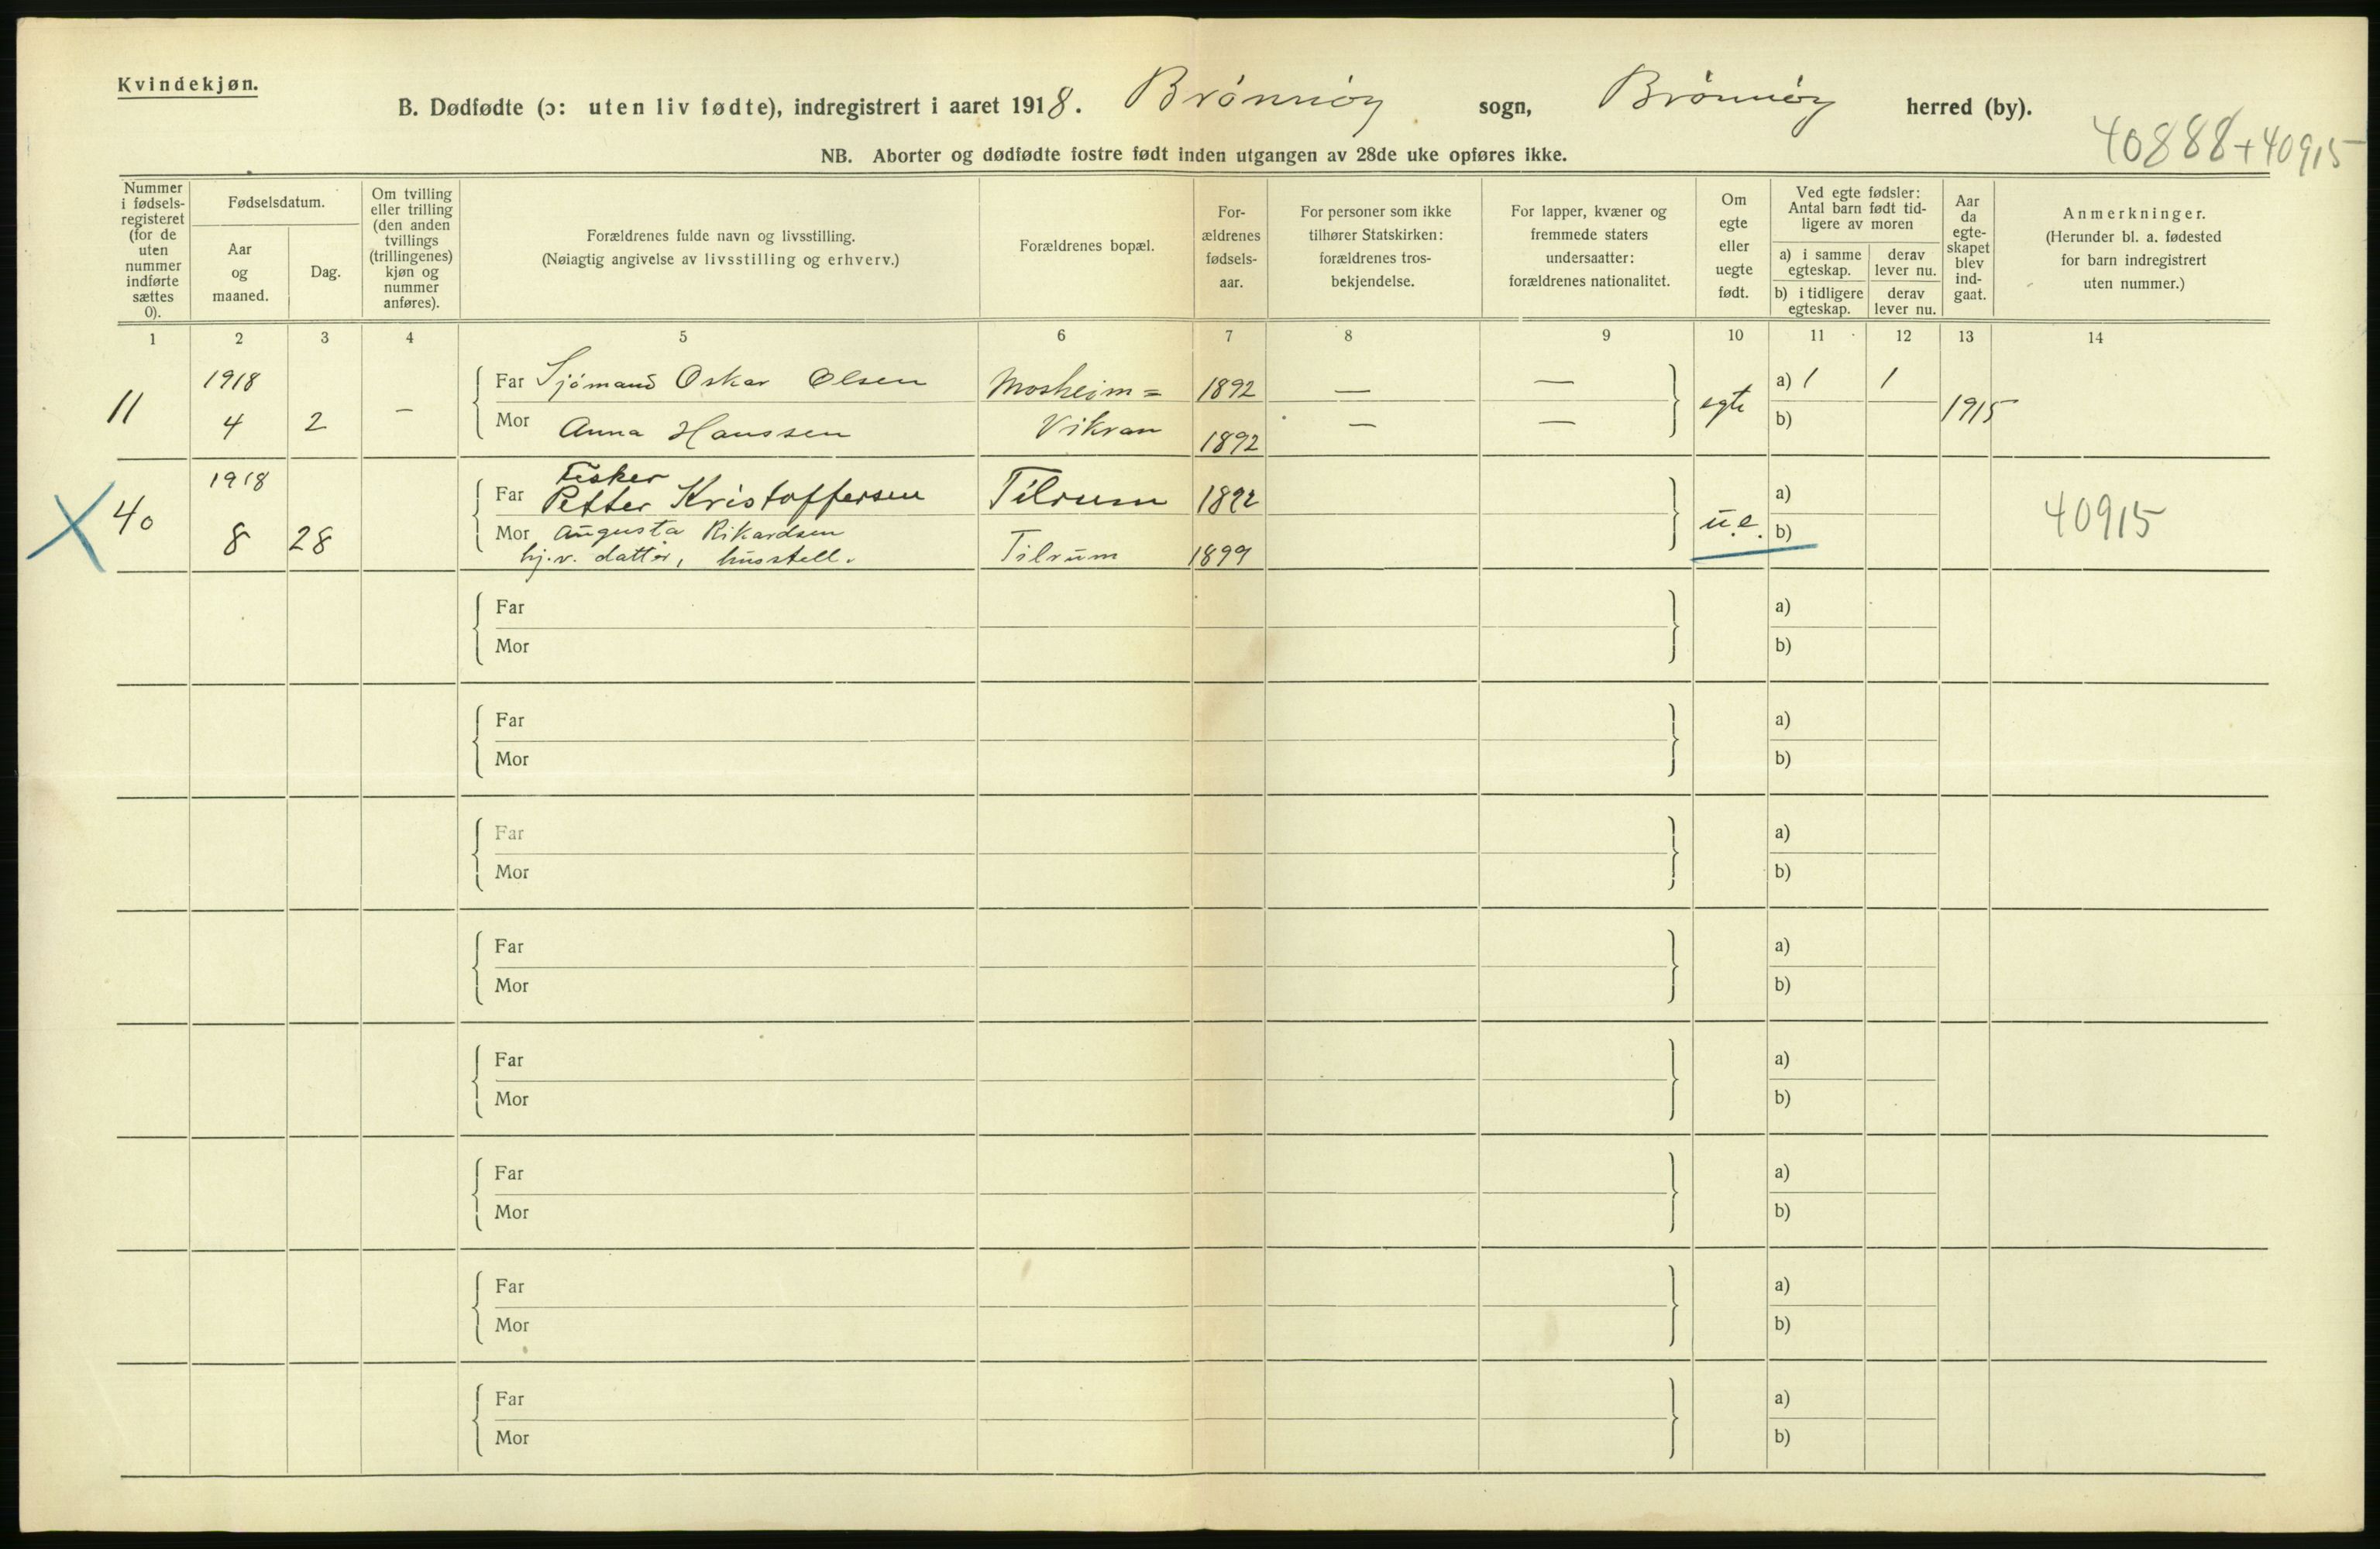 Kvindekjøn.
B. Dødfødte (ɔ: uten liv fødte), indregistrert i aaret 1918. Brønnøy sogn, Brønnøy herred (by).
40888+40915
NB. Aborter og dødfødte fostre født inden utgangen av 28de uke opføres ikke.
Nummer i fødsels-registeret (for de uten nummer indførte sættes 0).
Fødselsdatum.
Aar og maaned.
Dag.
Om tvilling eller trilling (den anden tvillings (trillingenes) kjøn og nummer anføres).
Forældrenes fulde navn og livsstilling.
(Nøiagtig angivelse av livsstilling og erhverv.)
Forældrenes bopæl.
For-ældrenes fødsels-aar.
For personer som ikke tilhører Statskirken: forældrenes tros-bekjendelse.
For lapper, kvæner og fremmede staters undersaatter: forældrenes nationalitet.
Om egte eller uegte født.
Ved egte fødsler: Antal barn født tid-ligere av moren
a) i samme egteskap.
derav lever nu.
b) i tidligere egteskap.
derav lever nu.
Aar da egte-skapet blev ind-gaat.
Anmerkninger.
(Herunder bl. a. fødested for barn indregistrert uten nummer.)
1 2 3 4 5 6 7 8 9 10 11 12 13 14
11 1918 4 2 —
Far Sjømand Oskar Olsen Mosheim= 1892 — —
Mor Anna Hanssen Vikran 1892 — —
egte a) 1 1 b) 1915
40 1918 8 28
Far Fisker
Petter Kristoffersen Tilrum 1892
Mor Augusta Rikardsen
hj.v. datter, husstell. Tilrum 1899
u.e. a) b) 40915
Far a)
Mor b)
Far a)
Mor b)
Far a)
Mor b)
Far a)
Mor b)
Far a)
Mor b)
Far a)
Mor b)
Far a)
Mor b)
Far a)
Mor b)